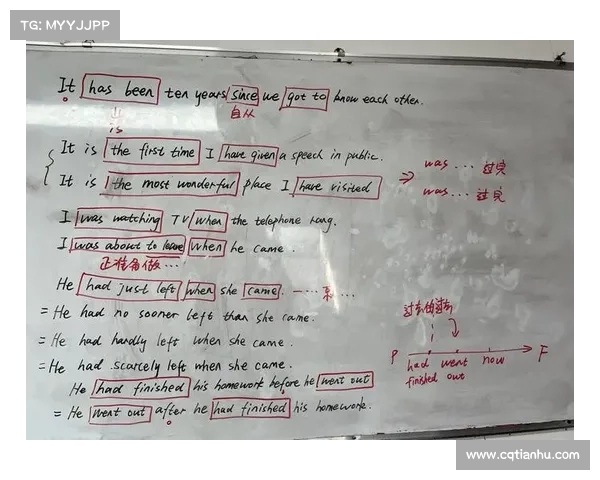 TG: MYYJJPP
It has been ten years since we got to know each other.
is
自从
It is the first time I have given a speech in public. ⇒ was ... 过完
It is the most wonderful place I have visited was ... 过完
I was watching TV when the telephone rang.
I was about to leave when he came.
正准备做...
He had just left when she came. 一...就...
= He had no sooner left than she came.
= He had hardly left when she came.
= He had scarcely left when she came.
He had finished his homework before he went out
= He went out after he had finished his homework.
过去的过去
P had went now F
finished out
www.cqtianhu.com